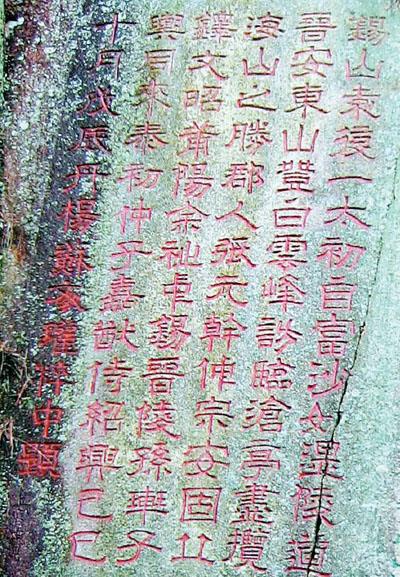 錫山袁復一太初自富沙如溫陵道
晉安東山登白雲峰訪臨滄亭盡攬
海山之勝郡人張元幹仲宗安固丘
鐸文昭莆陽余祉中錫晉陵孫璵子
與同來泰初仲子嘉猷侍紹興己巳
十月戊辰丹楊蘇文瓘粹中題